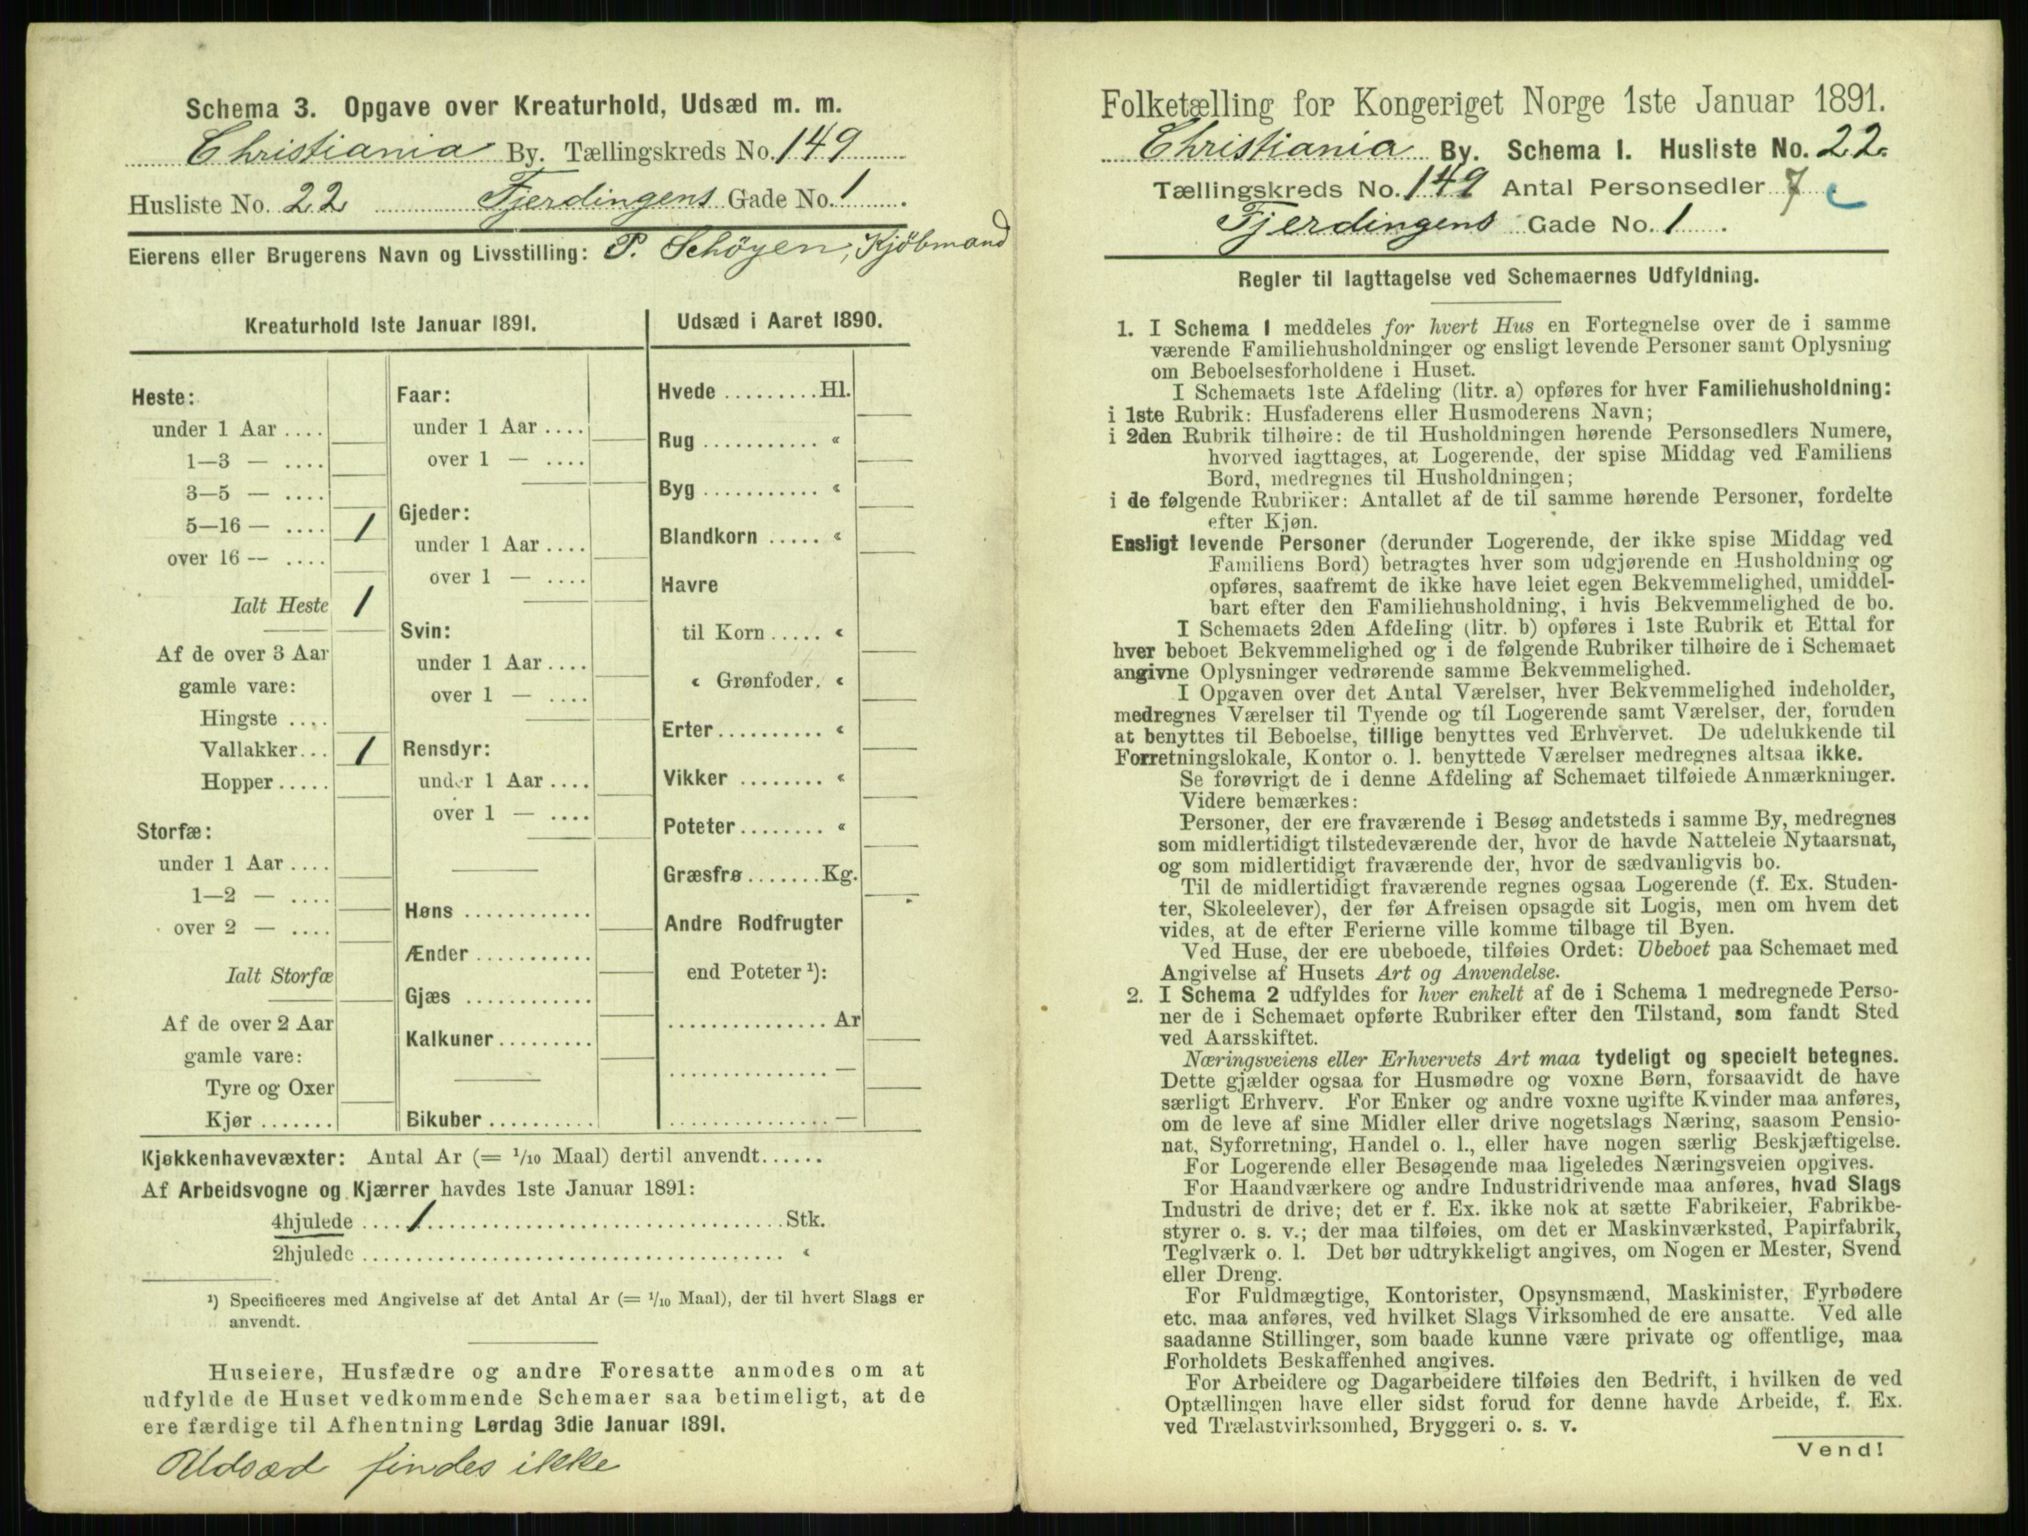 Schema 3. Opgave over Kreaturhold, Udsæd m. m.
Christiania By. Tællingskreds No. 149
Husliste No. 22 Fjerdingens Gade No. 1
Eierens eller Brugerens Navn og Livsstilling: P. Schöyen, Kjöbmand
Kreaturhold 1ste Januar 1891.
Heste:
under 1 Aar ....
1—3 — ....
3—5 — ....
5—16 — .... 1
over 16 — ....
Ialt Heste 1
Af de over 3 Aar
gamle vare:
Hingste ....
Vallakker... 1
Hopper.....
Storfæ:
under 1 Aar ....
1—2 — ....
over 2 — ....
Ialt Storfæ
Af de over 2 Aar
gamle vare:
Tyre og Oxer
Kjør .......
Faar:
under 1 Aar ....
over 1 — ....
Gjeder:
under 1 Aar ....
over 1 — ....
Svin:
under 1 Aar ....
over 1 — ....
Rensdyr:
under 1 Aar ....
over 1 — ....
Høns ............
Ænder ...........
Gjæs ............
Kalkuner.........
Bikuber ..........
Udsæd i Aaret 1890.
Hvede .........Hl.
Rug ........... «
Byg ........... «
Blandkorn ..... «
Havre
til Korn ..... «
« Grønfoder. «
Erter.......... «
Vikker ........ «
Poteter........ «
Græsfrø.......Kg.
Andre Rodfrugter
end Poteter ¹):
............... Ar
............... —
............... —
Kjøkkenhavevæxter: Antal Ar (= 1/10 Maal) dertil anvendt......
Af Arbeidsvogne og Kjærrer havdes 1ste Januar 1891:
4hjulede .... 1 ............................Stk.
2hjulede .................................... «
¹) Specificeres med Angivelse af det Antal Ar (= 1/10 Maal), der til hvert Slags er
anvendt.
Huseiere, Husfædre og andre Foresatte anmodes om at
udfylde de Huset vedkommende Schemaer saa betimeligt, at de
ere færdige til Afhentning Lørdag 3die Januar 1891.
Udsæd findes ikke
Folketælling for Kongeriget Norge 1ste Januar 1891.
Christiania By. Schema 1. Husliste No. 22.
Tællingskreds No. 149 Antal Personsedler 7
Fjerdingens Gade No. 1
Regler til Iagttagelse ved Schemaernes Udfyldning.
1. I Schema 1 meddeles for hvert Hus en Fortegnelse over de i samme
værende Familiehusholdninger og ensligt levende Personer samt Oplysning
om Beboelsesforholdene i Huset.
I Schemaets 1ste Afdeling (litr. a) opføres for hver Familiehusholdning:
i 1ste Rubrik: Husfaderens eller Husmoderens Navn;
i 2den Rubrik tilhøire: de til Husholdningen hørende Personsedlers Numere,
hvorved iagttages, at Logerende, der spise Middag ved Familiens
Bord, medregnes til Husholdningen;
i de følgende Rubriker: Antallet af de til samme hørende Personer, fordelte
efter Kjøn.
Ensligt levende Personer (derunder Logerende, der ikke spise Middag ved
Familiens Bord) betragtes hver som udgjørende en Husholdning og
opføres, saafremt de ikke have leiet egen Bekvemmelighed, umiddel-
bart efter den Familiehusholdning, i hvis Bekvemmelighed de bo.
I Schemaets 2den Afdeling (litr. b) opføres i 1ste Rubrik et Ettal for
hver beboet Bekvemmelighed og i de følgende Rubriker tilhøire de i Schemaet
angivne Oplysninger vedrørende samme Bekvemmelighed.
I Opgaven over det Antal Værelser, hver Bekvemmelighed indeholder,
medregnes Værelser til Tyende og til Logerende samt Værelser, der, foruden
at benyttes til Beboelse, tillige benyttes ved Erhvervet. De udelukkende til
Forretningslokale, Kontor o. l. benyttede Værelser medregnes altsaa ikke.
Se forøvrigt de i denne Afdeling af Schemaet tilføiede Anmærkninger.
Videre bemærkes:
Personer, der ere fraværende i Besøg andetsteds i samme By, medregnes
som midlertidigt tilstedeværende der, hvor de havde Natteleie Nytaarsnat,
og som midlertidigt fraværende der, hvor de sædvanligvis bo.
Til de midlertidigt fraværende regnes ogsaa Logerende (f. Ex. Studen-
ter, Skoleelever), der før Afreisen opsagde sit Logis, men om hvem det
vides, at de efter Ferierne ville komme tilbage til Byen.
Ved Huse, der ere ubeboede, tilføies Ordet: Ubeboet paa Schemaet med
Angivelse af Husets Art og Anvendelse.
2. I Schema 2 udfyldes for hver enkelt af de i Schema 1 medregnede Perso-
ner de i Schemaet opførte Rubriker efter den Tilstand, som fandt Sted
ved Aarsskiftet.
Næringsveiens eller Erhvervets Art maa tydeligt og specielt betegnes.
Dette gjælder ogsaa for Husmødre og voxne Børn, forsaavidt de have
særligt Erhverv. For Enker og andre voxne ugifte Kvinder maa anføres,
om de leve af sine Midler eller drive nogetslags Næring, saasom Pensio-
nat, Syforretning, Handel o. l., eller have nogen særlig Beskjæftigelse.
For Logerende eller Besøgende maa ligeledes Næringsveien opgives.
For Haandværkere og andre Industridrivende maa anføres, hvad Slags
Industri de drive; det er f. Ex. ikke nok at sætte Fabrikeier, Fabrikbe-
styrer o. s. v.; der maa tilføies, om det er Maskinværksted, Papirfabrik,
Teglværk o. l. Det bør udtrykkeligt angives, om Nogen er Mester, Svend
eller Dreng.
For Fuldmægtige, Kontorister, Opsynsmænd, Maskinister, Fyrbødere
etc. maa anføres, ved hvilket Slags Virksomhed de ere ansatte. Ved alle
saadanne Stillinger, som baade kunne være private og offentlige, maa
Forholdets Beskaffenhed angives.
For Arbeidere og Dagarbeidere tilføies den Bedrift, i hvilken de ved
Optællingen have eller sidst forud for denne havde Arbeide, f. Ex.
ved Trælastvirksomhed, Bryggeri o. s. v.
Vend!